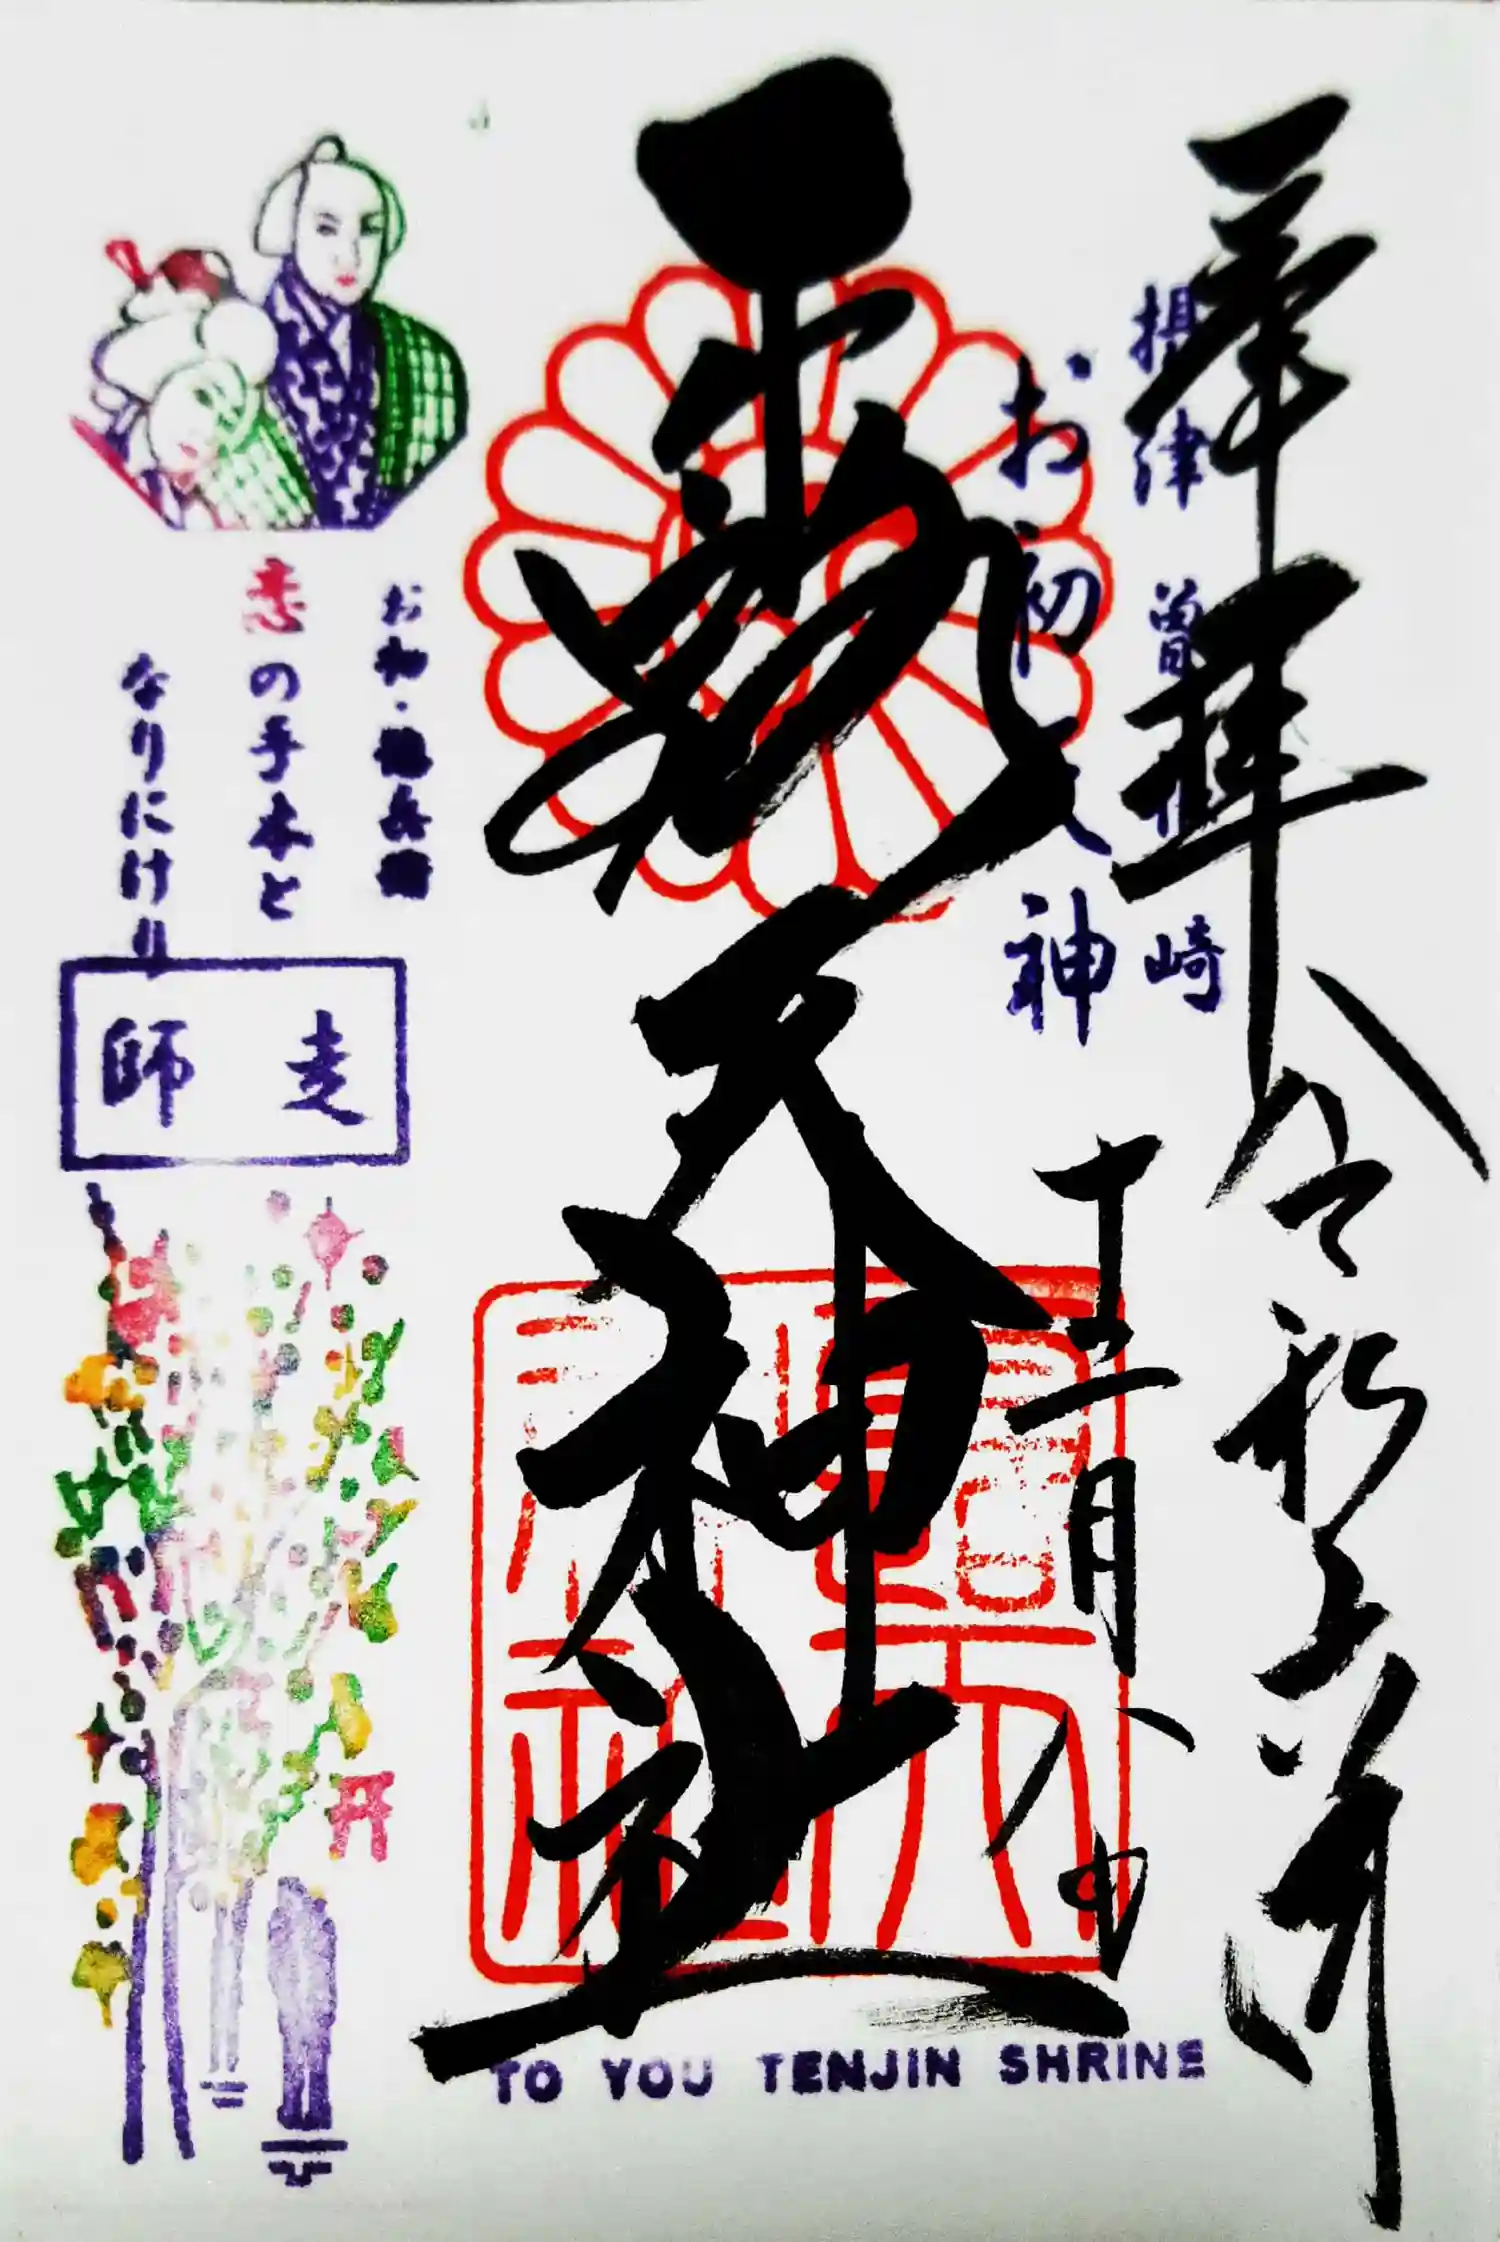 奉拝
令和
摂津 曽根崎
お初天神
十二月八日
露天神社
TO YOU TENJIN SHRINE
お初・徳兵衛
恋の手本と
なりにけり
師走